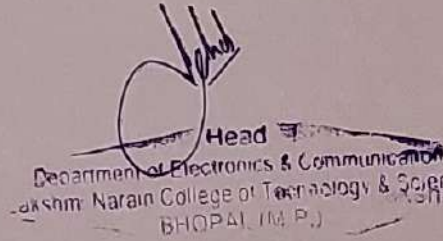 Head
Department of Electronics & Communication
Lakshmi Narain College of Technology & Scie
BHOPAL (M.P.)